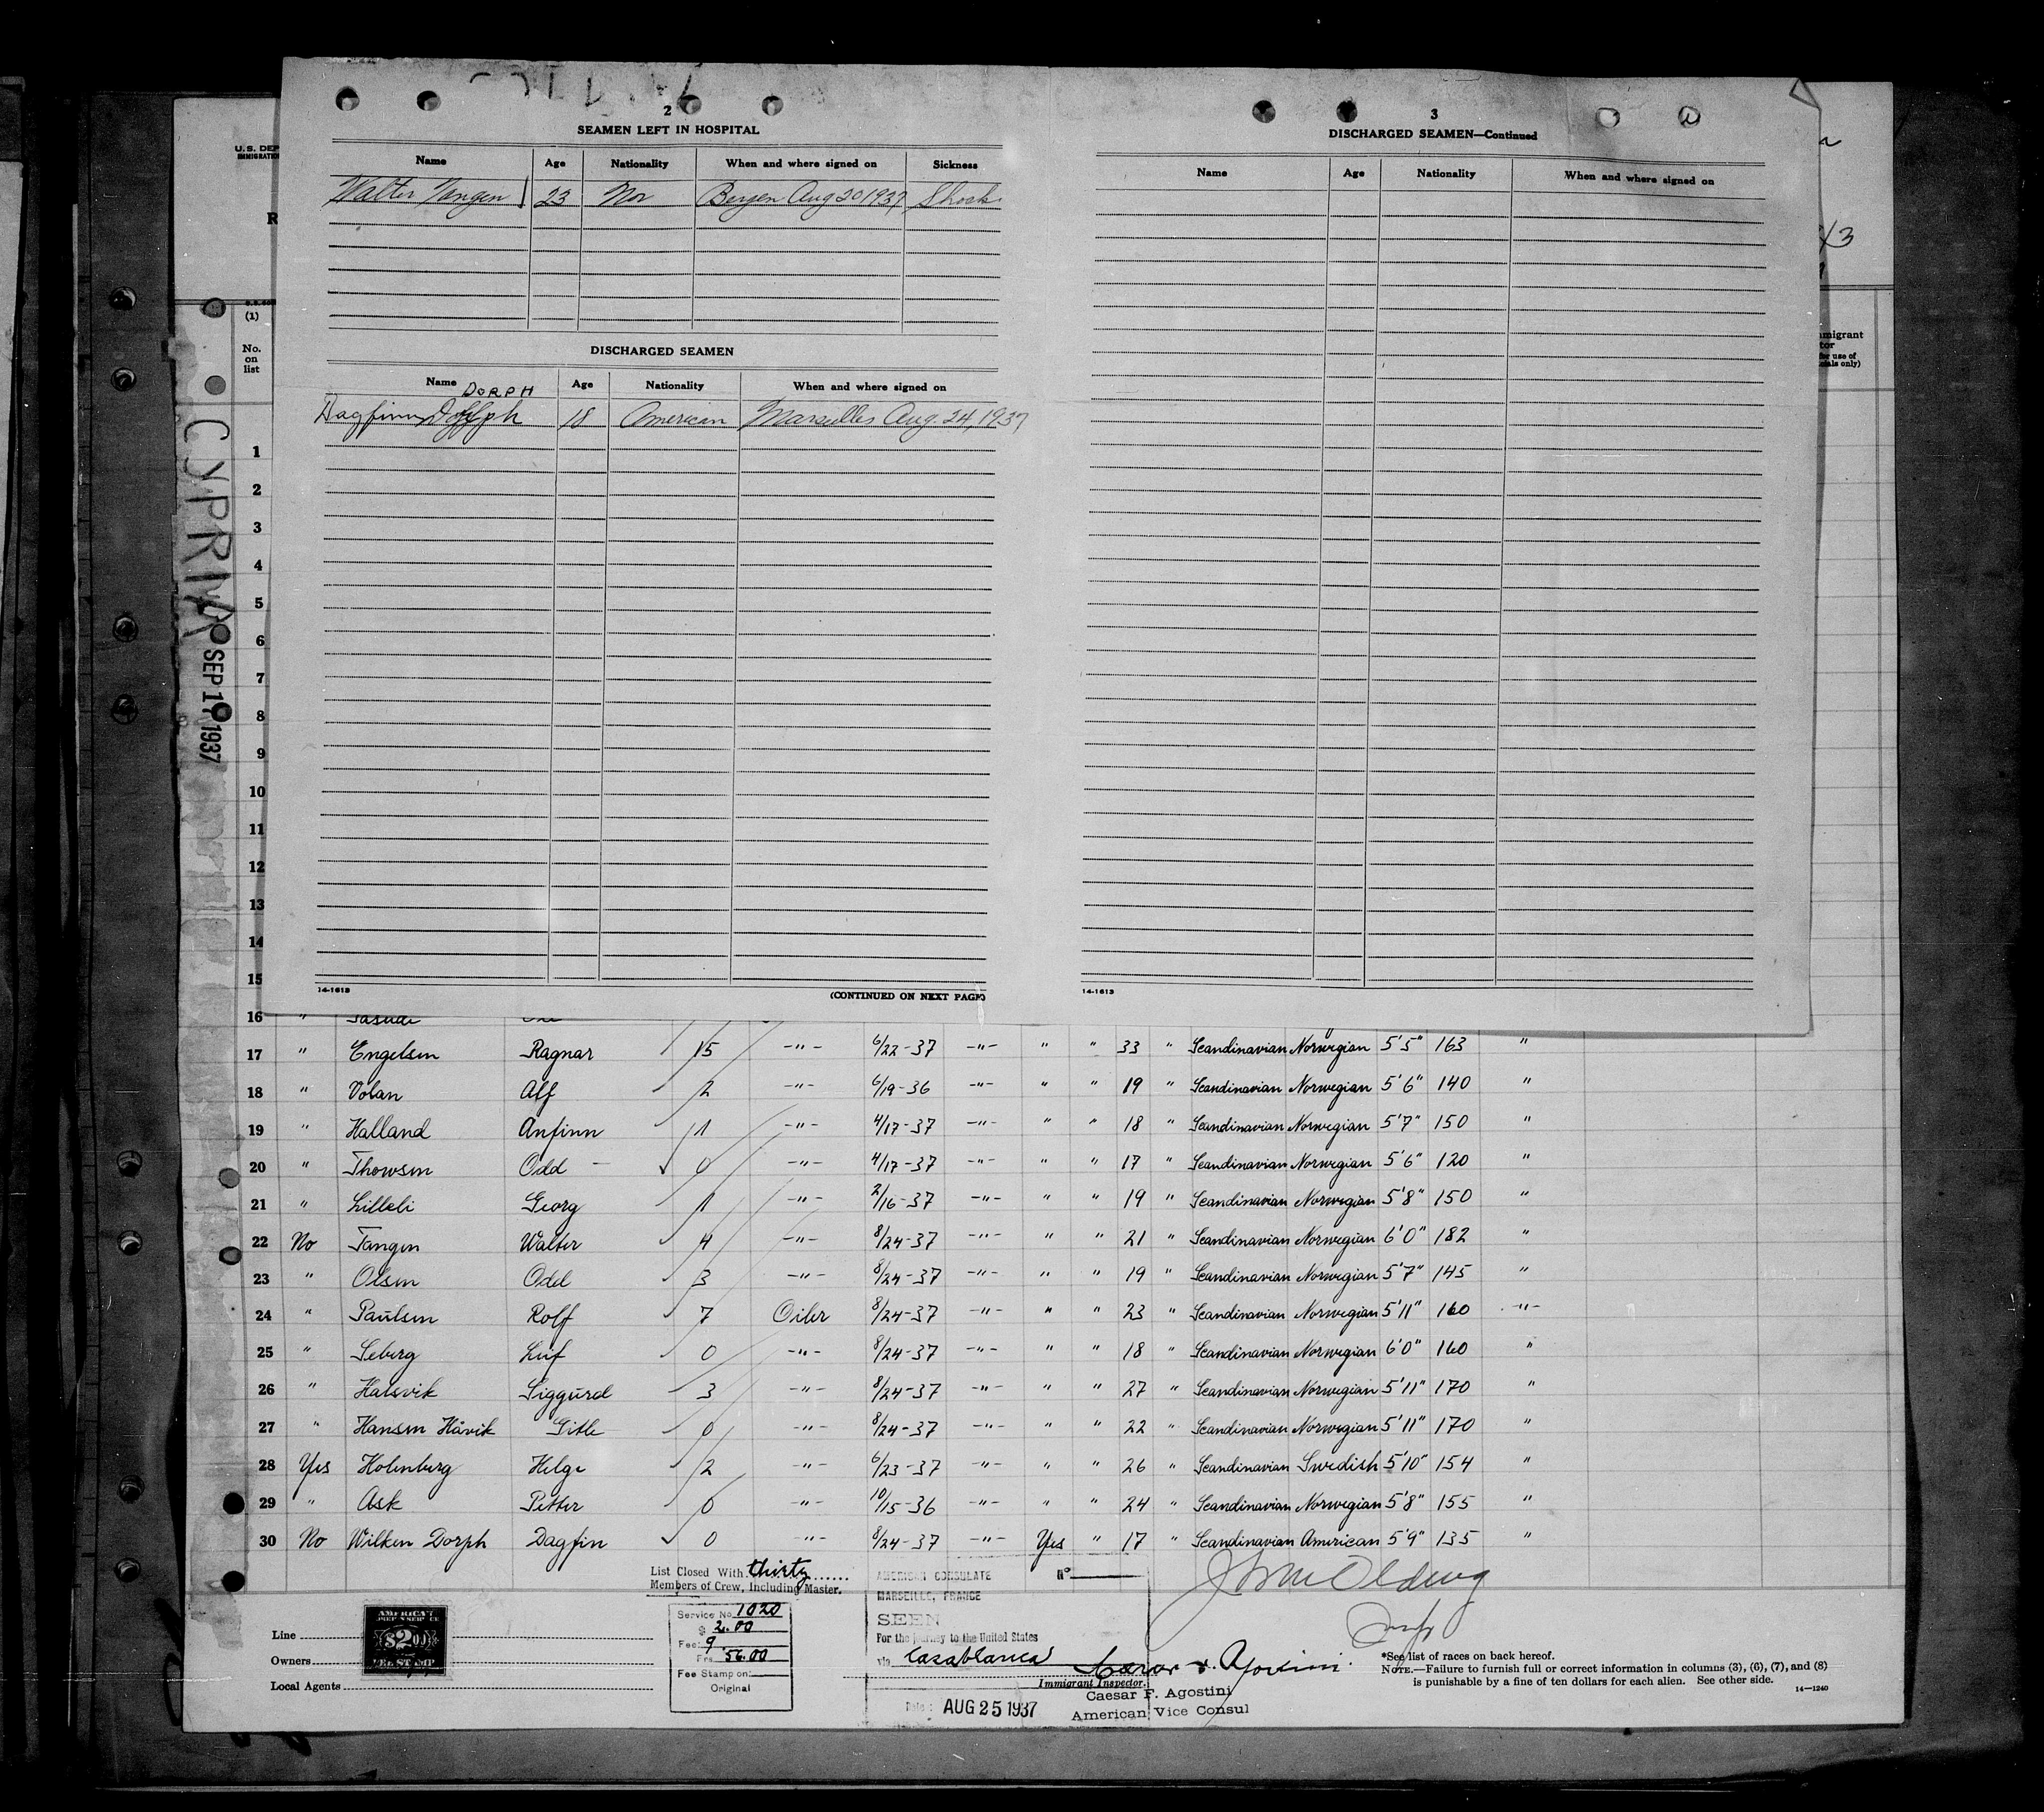 2
SEAMEN LEFT IN HOSPITAL
Name Age Nationality When and where signed on Sickness
Walter Tangen 23 Nor Bergen Aug 20 1937 Shock
DISCHARGED SEAMEN
Name Age Nationality When and where signed on
DORPH
Dagfinn 18 American Marseilles Aug. 24, 1937
14-1613
(CONTINUED ON NEXT PAGE)
3
DISCHARGED SEAMEN—Continued
Name Age Nationality When and where signed on
14-1613
U.S. DEP
IMMIGRATION
R
(1)
No.
on
list
CYPRIA
SEP 17 1937
X3
mmigrant
tor
for use of
cials only)
1
2
3
4
5
6
7
8
9
10
11
12
13
14
15
16 "
17 " Engelsen Ragnar 15 -"- 6/22-37 -"- " " 33 " Scandinavian Norwegian 5'5" 163 "
18 " Volan Alf 2 -"- 6/19-36 -"- " " 19 " Scandinavian Norwegian 5'6" 140 "
19 " Halland Anfinn 1 -"- 4/17-37 -"- " " 18 " Scandinavian Norwegian 5'7" 150 "
20 " Thowsen Odd - 0 -"- 4/17-37 -"- " " 17 " Scandinavian Norwegian 5'6" 120 "
21 " Lilleli Georg 1 -"- 2/16-37 -"- " " 19 " Scandinavian Norwegian 5'8" 150 "
22 No Tangen Walter 4 -"- 8/24-37 -"- " " 21 " Scandinavian Norwegian 6'0" 182 "
23 " Olsen Odd 3 -"- 8/24-37 -"- " " 19 " Scandinavian Norwegian 5'7" 145 "
24 " Paulsen Rolf 7 Oiler 8/24-37 -"- " " 23 " Scandinavian Norwegian 5'11" 160 -"-
25 " Seberg Leif 0 -"- 8/24-37 -"- " " 18 " Scandinavian Norwegian 6'0" 160 "
26 " Halsvik Siggurd 3 -"- 8/24-37 -"- " " 27 " Scandinavian Norwegian 5'11" 170 "
27 " Hansen Håvik Gitle 0 -"- 8/24-37 -"- " " 22 " Scandinavian Norwegian 5'11" 170 "
28 Yes Holmberg Helge 2 -"- 6/23-37 -"- " " 26 " Scandinavian Swedish 5'10" 154 "
29 " Ask Petter 0 -"- 10/15-36 -"- " " 24 " Scandinavian Norwegian 5'8" 155 "
30 No Wilken Dorph Dagfin 0 -"- 8/24-37 -"- Yes " 17 " Scandinavian American 5'9" 135 "
List Closed With thirty
Members of Crew, Including Master.
AMERICAN CONSULATE
MARSEILLE, FRANCE
Nº
SEEN
For the journey to the United States
via Casablanca
Date: AUG 25 1937
Service No. 1020
$ 2.00
Fee: 9
Frs 56.00
Fee Stamp on
Original
Line
Owners
Local Agents
AMERICAN
$2.00
FEE STAMP
Immigrant Inspector.
Caesar F. Agostini
American Vice Consul
*See list of races on back hereof.
NOTE.—Failure to furnish full or correct information in columns (3), (6), (7), and (8)
is punishable by a fine of ten dollars for each alien. See other side.
14—1240